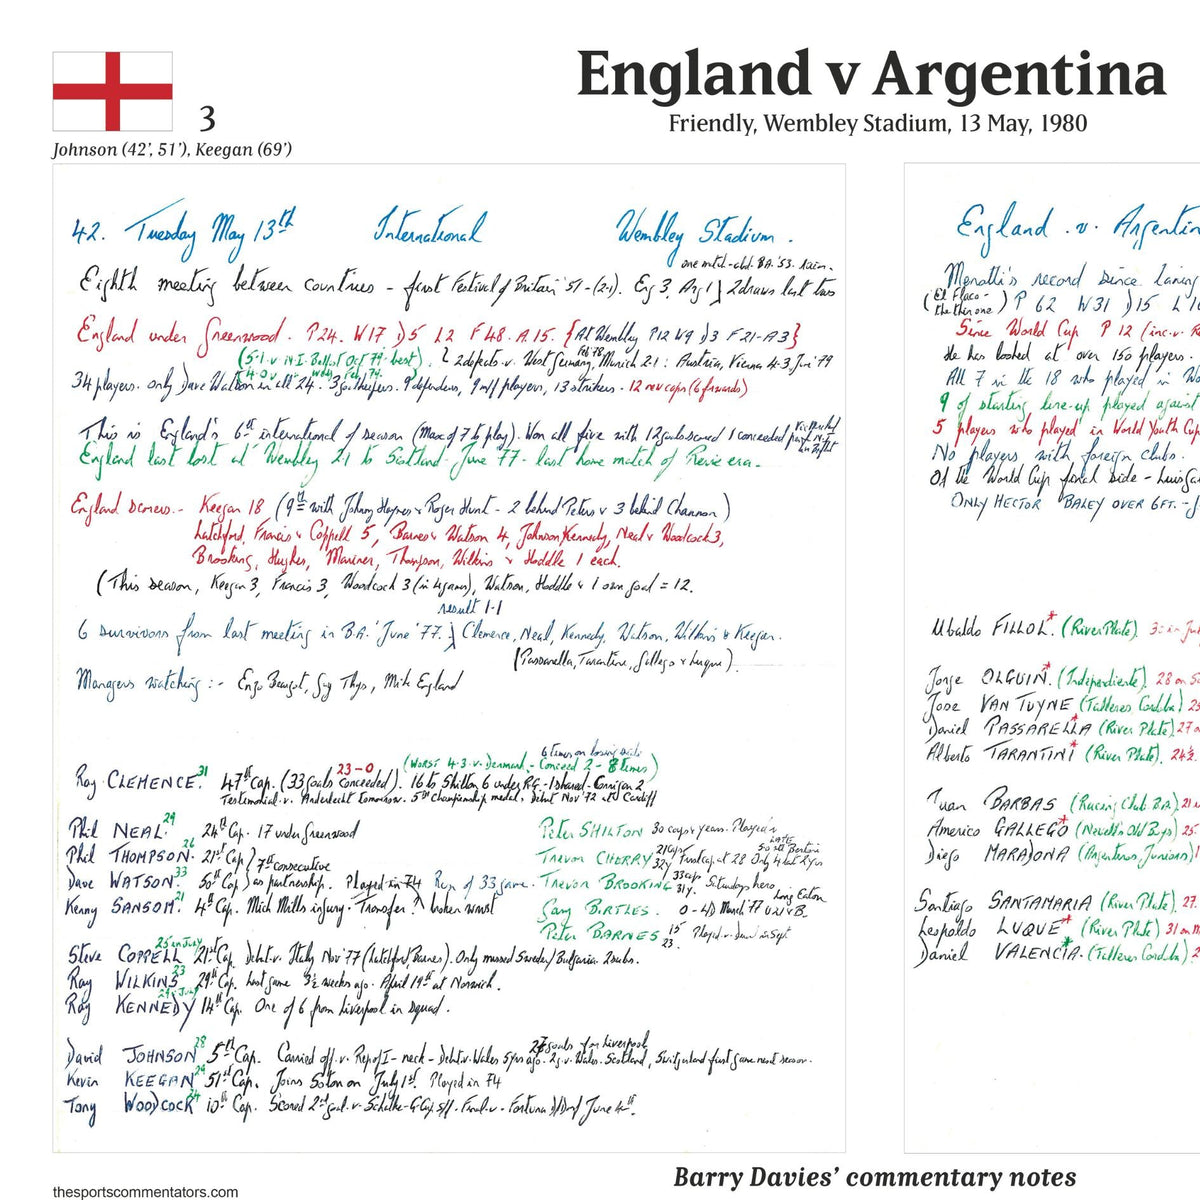 England v Argentina
Friendly, Wembley Stadium, 13 May, 1980
3
Johnson (42’, 51’), Keegan (69’)
42. Tuesday May 13th International Wembley Stadium.
one match-abd. B.A. '53. Rain.
Eighth meeting between countries - first Festival of Britain '51 - (2-1). Eng 3, Arg 1 } 2 draws last two
England under Greenwood. P24. W17 D5 L2 F48. A.15. {At Wembley P12 W9 D3 F21-A3}
(5-1 v N.I. Belfast Oct 79 - best). 2 defeats v. West Germany, Munich 2-1 : Austria, Vienna 4-3 June '79
Feb '78
(4-0 v Feb 79.
34 players. only Dave Watson in all 24. 3 goalkeepers. 9 defenders, 9 m/f players, 13 strikers. 12 new caps (6 forwards)
This is England's 6th international of season (Max of 7 to play). Won all five with 12 goals scored 1 conceded
England last lost at Wembley 2-1 to Scotland June 77 - last home match of Revie era.
England scorers:- Keegan 18 (9th with Johnny Haynes & Roger Hunt - 2 behind Peters & 3 behind Channon)
Latchford, Francis & Coppell 5, Barnes & Watson 4, Johnson, Kennedy, Neal & Woodcock 3,
Brooking, Hughes, Mariner, Thompson, Wilkins & Hoddle 1 each.
(This season, Keegan 3, Francis 3, Woodcock 3 (in 4 games), Watson, Hoddle & 1 own goal = 12.
result 1-1
6 survivors from last meeting in B.A. 'June '77. } Clemence, Neal, Kennedy, Watson, Wilkins & Keegan.
(Passarella, Tarantini, Gallego & Luque).
Managers watching :- Enzo Bearzot, Guy Thys, Mike England
6 times on losing side
23-0 (Worst 4-3 v. Denmark - Conceed 2 - 8 times)
Ray CLEMENCE. 31 47th Cap. (33 goals conceeded). 16 to Shilton 6 under R.G. - 1 shared - Corrigan 2
Testimonial v. Anderlecht tomorrow. 5th Championship medal, Debut Nov '72 at Cardiff
Phil NEAL. 29 24th Cap. 17 under Greenwood
Phil THOMPSON. 26 21st Cap } 7th consecutive
Dave WATSON. 33 50th Cap } as partnership. Played in 74 Run of 33 games.
Kenny SANSOM. 21 4th Cap. Mick Mills injury. Transfer? broken wrist
Peter SHILTON 30 caps & years. Played in
Trevor CHERRY 21 caps 32y First cap at 28 Only 4 last 2 yrs
Trevor BROOKING 33 caps 31y. Saturdays hero
Gary BIRTLES. 0 - Long Eaton
Peter BARNES 15 23. Played v. Den in Sept
Steve COPPELL 25 in July 21st Cap. Debut v. Italy Nov '77 (Latchford, Barnes). Only missed Sweden/Bulgaria. 2 subs.
Ray WILKINS 23 29th Cap. Last game 3½ weeks ago. April 19th at Norwich.
Ray KENNEDY 29 July 14th Cap. One of 6 from Liverpool in squad.
27 goals for Liverpool
David JOHNSON 28 5th Cap. Carried off v. Rep of I - neck - Debut v. Wales 5 yrs ago. 2g. v. Wales. Scotland, Switzerland first game next season.
Kevin KEEGAN 29 51st Cap. Joins Soton on July 1st. Played in 74
Tony WOODCOCK 24 10th Cap. Scored 2nd goal v. Schalke - G. Cup s/f. Final v. Fortuna D/Dorf June 4th.
England .v. Argentin
Menotti's record since
(El Flaco - the thin one) P 62 W31 D15
Since World Cup P 12 (inc. v.
He has looked at over 150 players.
All 7 in the 18 who played in
9 of starting line-up played against
5 players who played in World Youth Cup
No players with foreign clubs.
Of the World Cup final side -
ONLY HECTOR BALEY OVER 6FT. -
Ubaldo FILLOL.* (River Plate).
Jorge OLGUIN.* (Independiente). 28
Jose VAN TUYNE (Talleres Cordoba)
Daniel PASSARELLA* (River Plate). 27
Alberto TARANTINI* (River Plate). 24½.
Juan BARBAS (Racing Club B.A). 21
Americo GALLEGO* (Newell's Old Boys) 25
Diego MARADONA (Argentinos Juniors)
Santiago SANTAMARIA (River Plate). 27.
Leopoldo LUQUE* (River Plate) 31
Daniel VALENCIA.* (Talleres Cordoba).
Barry Davies’ commentary notes
thesportscommentators.com